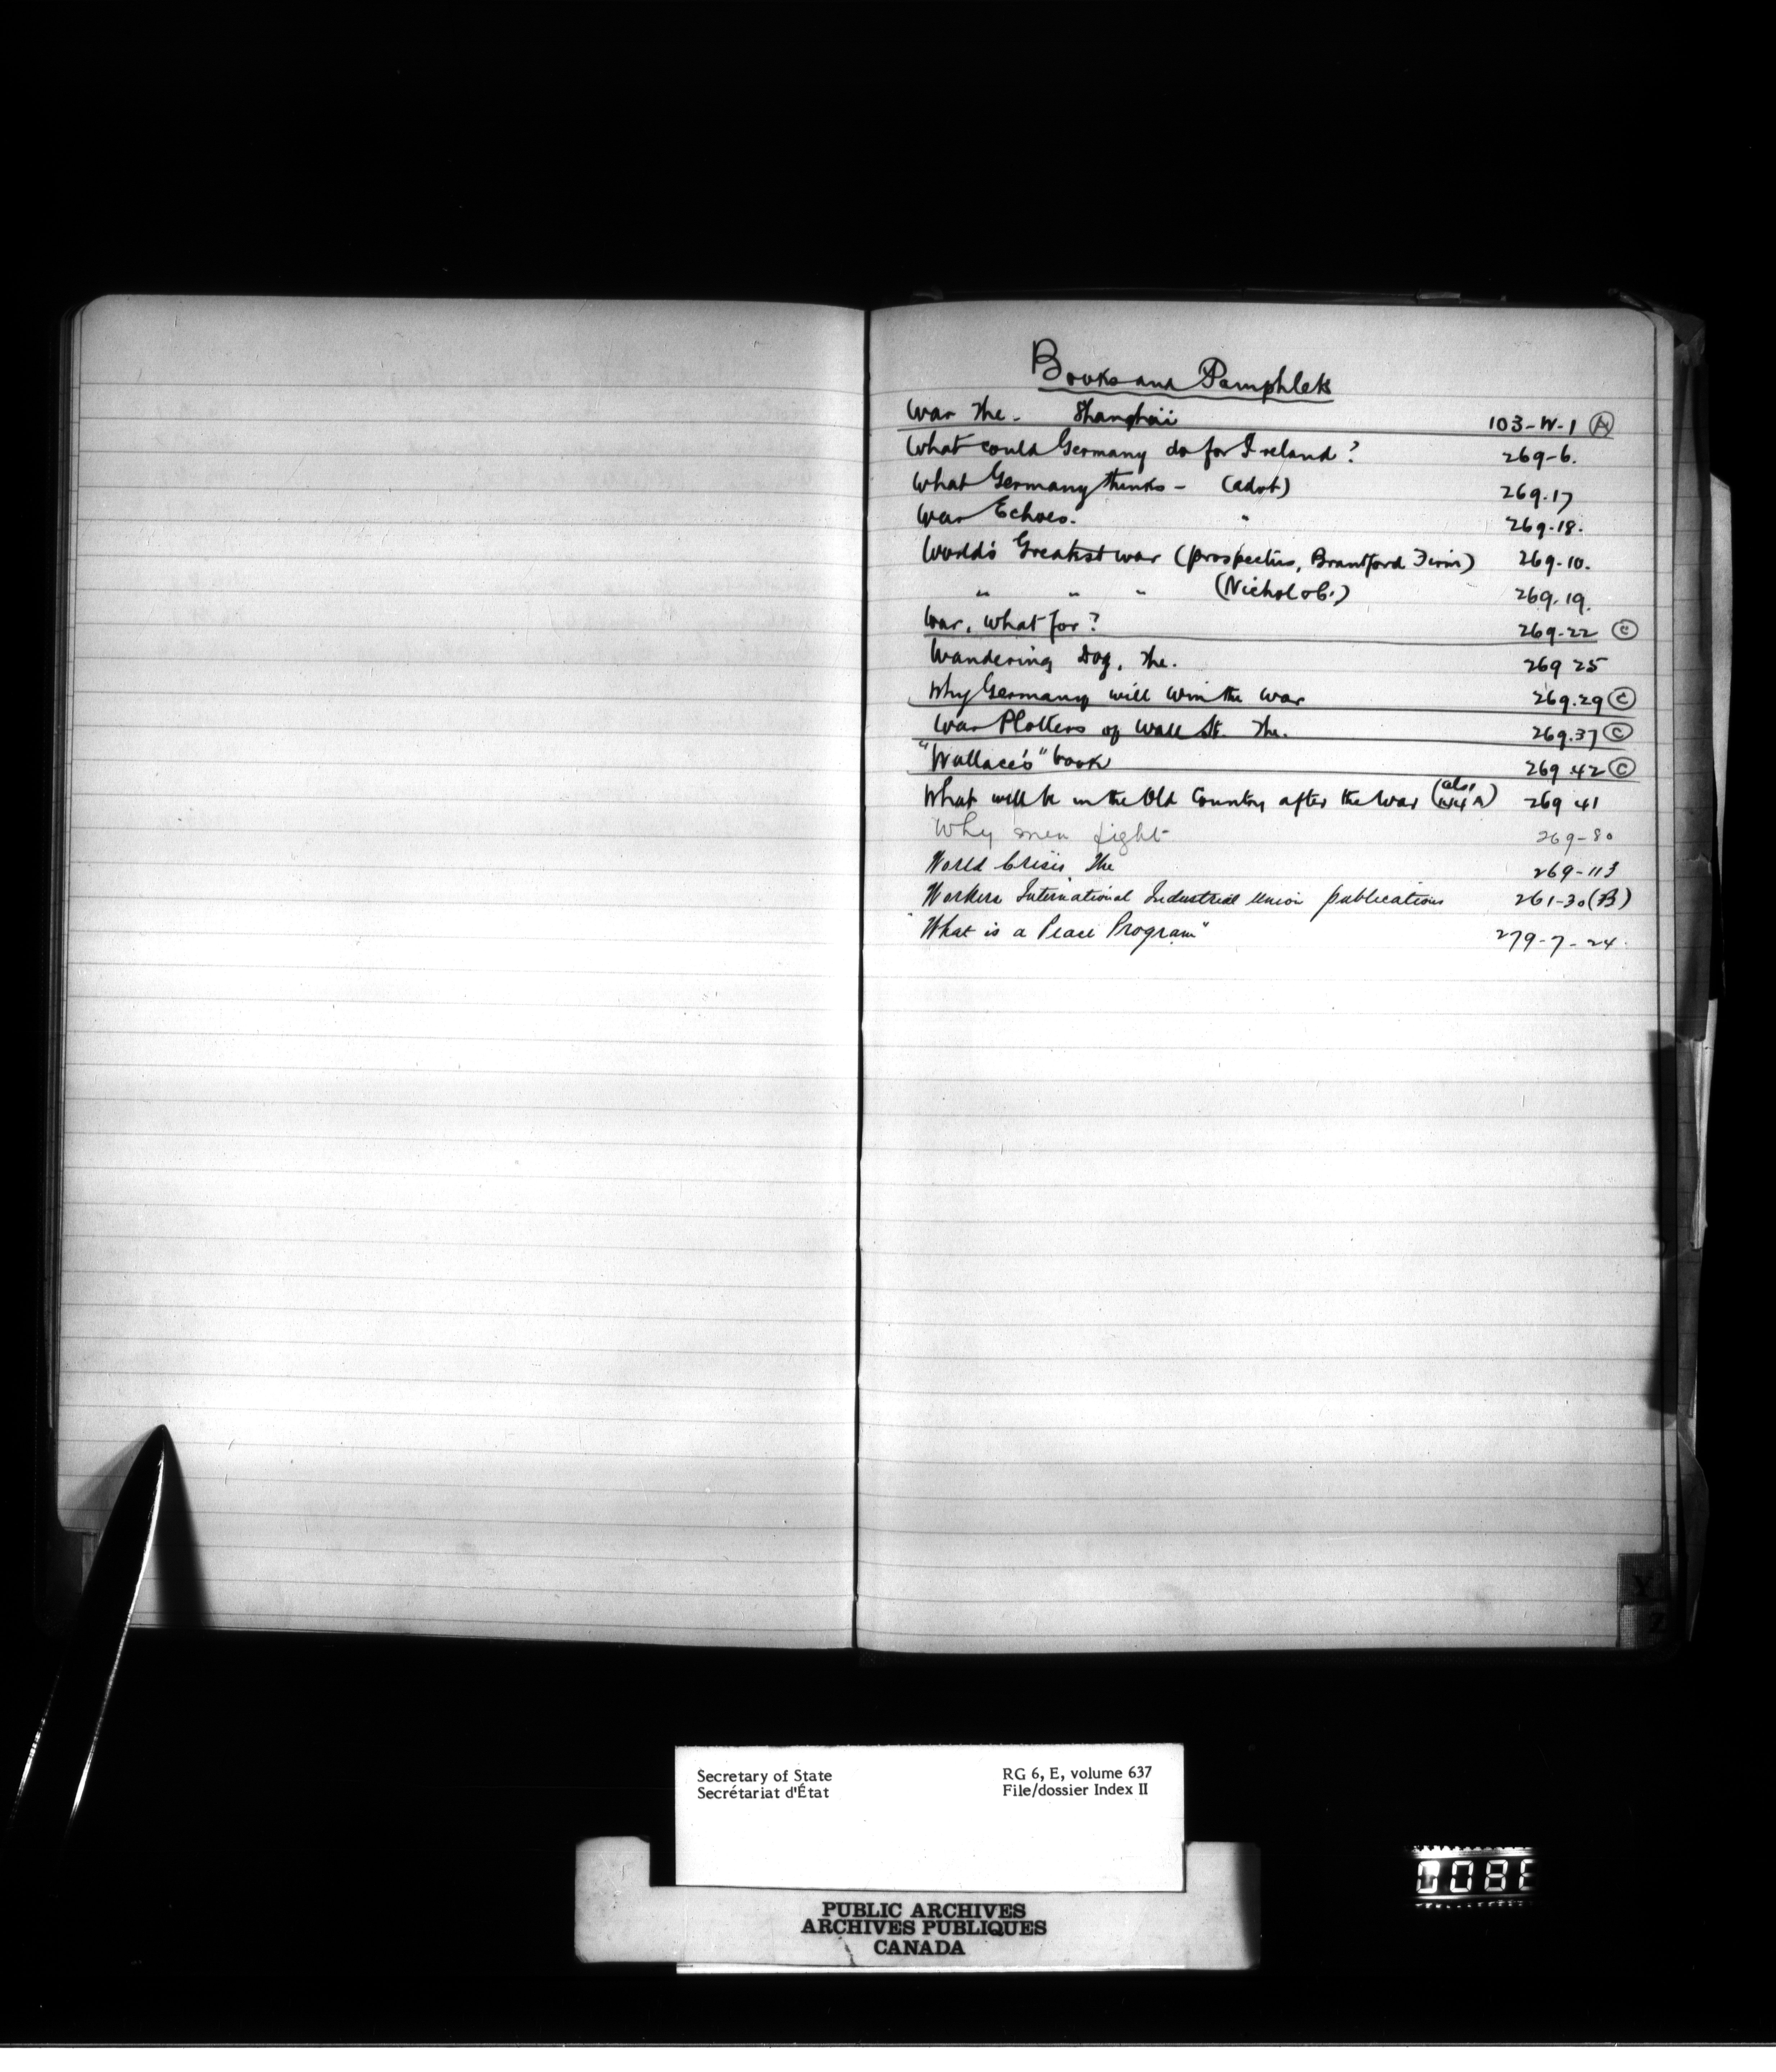 Books and Pamphlets
War The - Shanghai 103-W-1 Ⓐ
What could Germany do for Ireland? 269-6.
What Germany thinks - (advt) 269.17
War Echoes. " 269.18.
World's Greatest war (prospectus, Brantford Firm) 269.10.
" " " (Nichol & C.) 269.19.
War, What for? 269-22 Ⓒ
Wandering Dog, The. 269 25
Why Germany will win the war 269.29 Ⓒ
War Plotters of Wall St. The. 269.37 Ⓒ
"Wallace's" book 269.42 Ⓒ
What will be in the Old Country after the War (also A) 269 41
Why men fight 269-80
World Crisis, The 269-113
Workers International Industrial Union publications 261-30(B)
"What is a Peace Program" 279-7-24.
Y
Z
Secretary of State RG 6, E, volume 637
Secrétariat d'État File/dossier Index II
PUBLIC ARCHIVES
ARCHIVES PUBLIQUES
CANADA